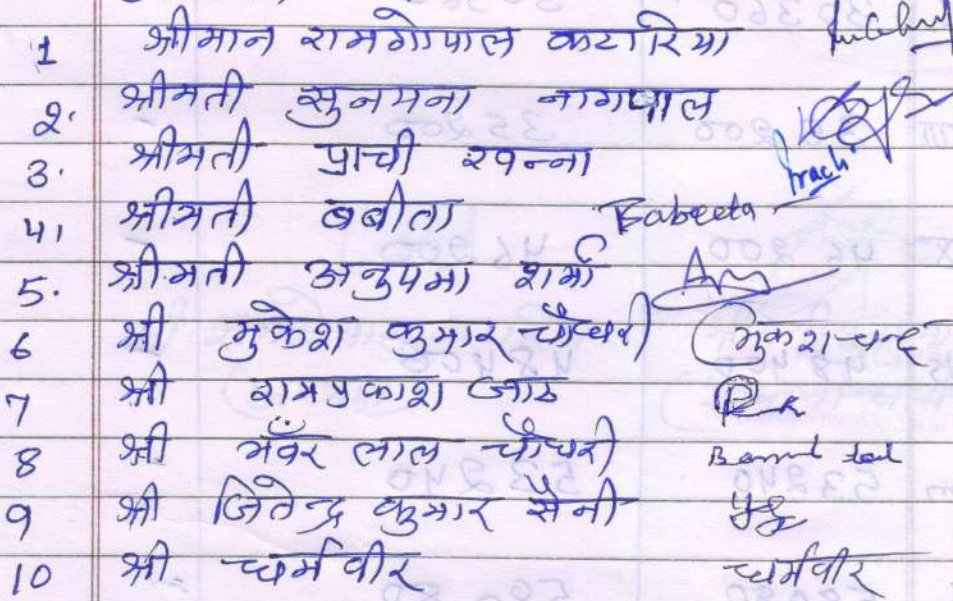 1 श्रीमान रामगोपाल कटारिया
2. श्रीमती सुनयना नागपाल
3. श्रीमती प्राची खन्ना Prachi
4। श्रीमती बबीता Babeeta
5. श्रीमती अनुपमा शर्मा
6 श्री मुकेश कुमार चौधरी मुकेश चन्द
7 श्री रामप्रकाश जाट
8 श्री भँवर लाल चौधरी
9 श्री जितेन्द्र कुमार सैनी
10 श्री धर्मवीर धर्मवीर